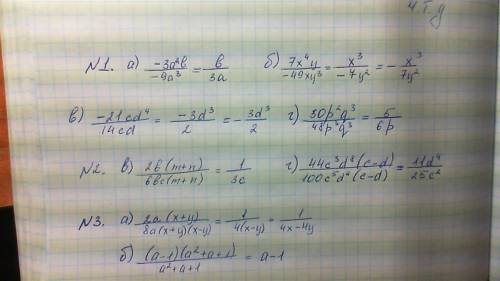 №1. а) -3a²b/-9a³ = b/3a б) 7x⁴y/-49xy³ = x³/-7y² = - x³/7y²
в) -21cd⁴/14cd = -3d³/2 = - 3d³/2 г) 50p²q³/48p³q³ = 5/6p
№2. в) 2b(m+n)/6bc(m+n) = 1/3c г) 44c³d⁸(c-d)/100c⁵d⁴(c-d) = 11d⁴/25c²
№3. а) 2a(x+y)/8a(x+y)(x-y) = 1/4(x-y) = 1/4x-4y
б) (a-1)(a²+a+1)/a²+a+1 = a-1